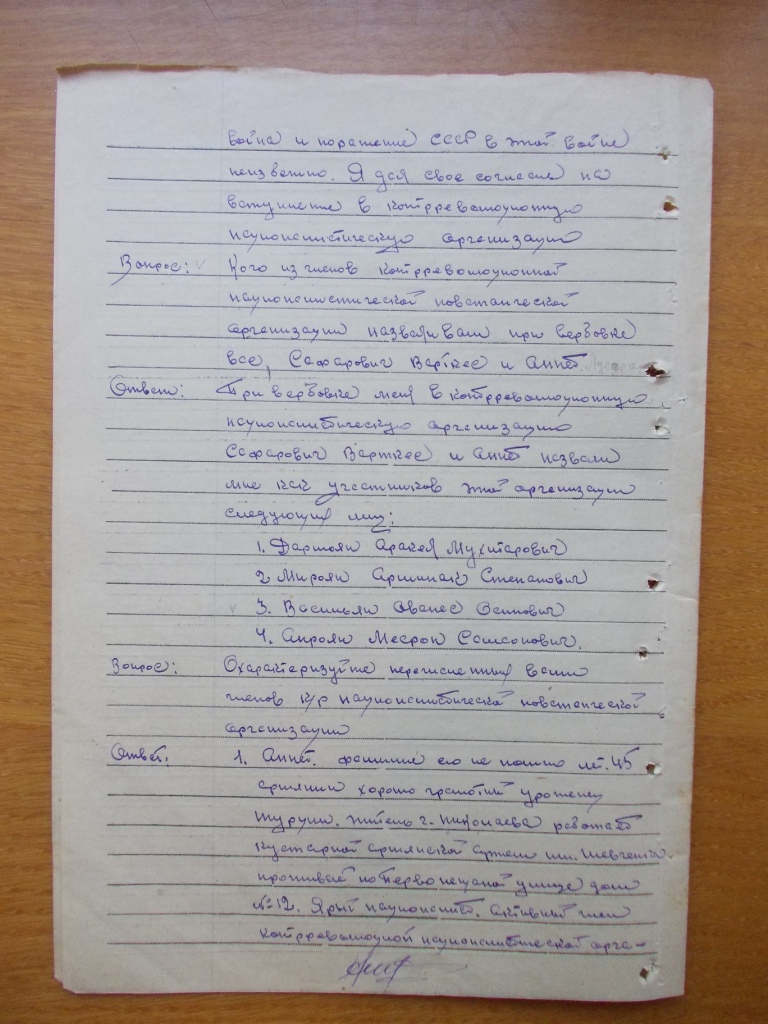 война и поражение СССР в этой войне
неизбежно. Я дал свое согласие на
вступление в контрреволюционную
националистическую организацию
Вопрос: Кого из членов контрреволюционной
националистической повстанческой
организации называли вам при вербовке
вас, СафаровичВарткес и Аннет
Ответ: При вербовке меня в контрреволюционную
националистическую организацию
Сафарович Варткес и Аннет назвали
мне как участников этой организации
следующих лиц:
1. Аракел Мухитарович
2 Мироян Аршинак Степанович
3. Васильян Ованес Осипович
4. Апроян Месроп Самсонович.
Вопрос: Охарактеризуйте перечисленных вами
членов к/р националистической повстанческой
организации
Ответ. 1. Аннет. фамилие его не помню лет. 45
армянин хорошо грамотный уроженец
Турции. житель г. Николаева работает
кустарной армянской артели им. Шевченко
проживает по Первопесчаной улице дом
№12. Ярый националист. активный член
контрреволюционной националистической орга-